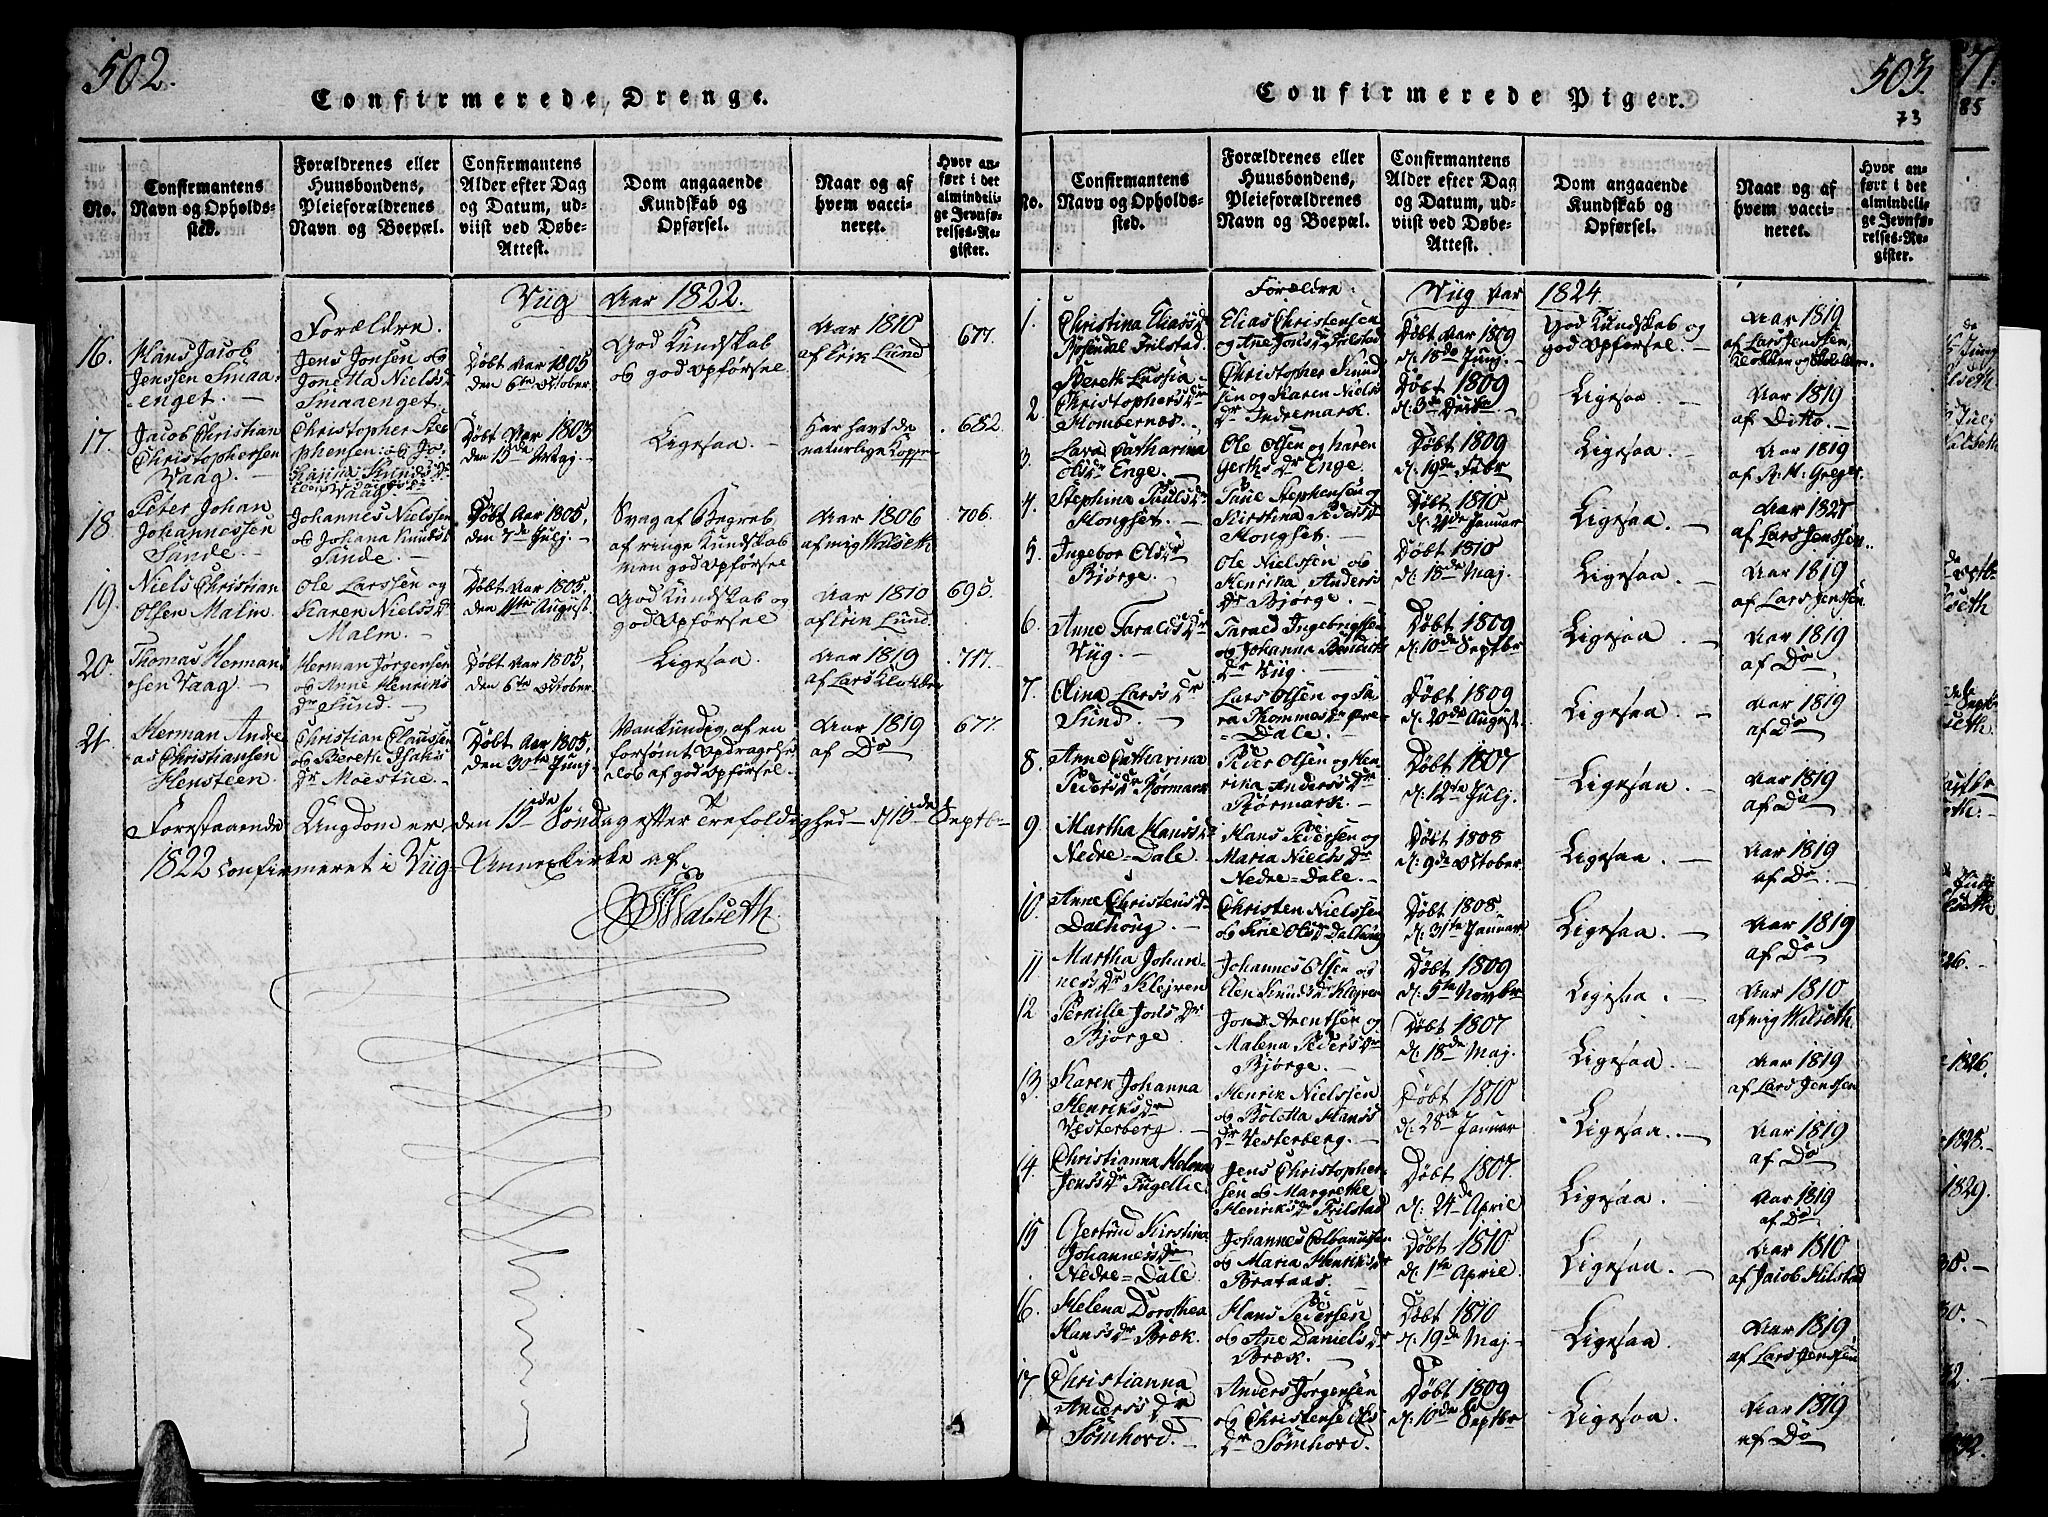 502.
Confirmerede Drenge.
No.
Confirmantens
Navn og Opholds-
sted.
Forældrenes eller
Huusbondens,
Pleieforældrenes
Navn og Boepæl.
Confirmantens
Alder efter Dag
og Datum, ud-
viist ved Døbe-
Attest.
Dom angaaende
Kundskab og
Opførsel.
Naar og af
hvem vacci-
neret.
Hvor an-
ført i det
almindeli-
ge Jevnfø-
relses-Re-
gister.
Viig Aar 1822.
16.
Hans Jacob
Jenssen Smaa-
enget.
Forældre.
Jens Jonsen og
Jonetta Niels Dr
Smaaenget.
Døbt Aar 1805
den 6te October
God Kundskab
og god Opførsel
Aar 1810
af Erik Lund
677.
17.
Jacob Christian
Christophersen
Vaag.
Christopher Ste-
phensen og Jo-
Vaag.
Døbt Aar 1803
den 15de Maj.
Ligesaa.
Har havt de
naturlige Kopper
682.
18.
Peter Johan
Johannessen
Sande.
Johannes Nielssen
og Johana Knuds Dr
Sande.
Døbt Aar 1805,
den 7de Julj.
Svag af Begreb
af ringe Kundskab
men god Opførsel
Aar 1806
af mig Walseth
706.
19.
Niels Christian
Olsen Malm.
Ole Larssen og
Karen Niels Dr
Malm.
Døbt Aar 1805.
den 11te August.
God Kundskab og
god Opførsel
Aar 1810
af Erik Lund.
695.
20.
Thomas Herman-
sen Vaag.
Herman Jørgensen
og Anne Henriks
Dr Sund.
Døbt Aar 1805,
den 6te October.
Ligesaa.
Aar 1819
af Lars Klokker
717.
21.
Herman Andre
as Christiansen
Hensteen.
Christian Claussen
og Bereth Isaks
Dr Moestue.
Døbt Aar 1805,
den 30te Junj.
Vankundig, af en
forsømt Opdragelse
og af god Opførsel.
Aar 1819
af Do
677.
Forestaaende Ungdom er den 15de Søndag efter Trefoldighed d 15de Septbr
1822 confirmeret i Viig Annex Kirke af
Walseth
503.
73
Confirmerede Piger.
No.
Confirmantens
Navn og Opholds-
sted.
Forældrenes eller
Huusbondens,
Pleieforældrenes
Navn og Boepæl.
Confirmantens
Alder efter Dag
og Datum, ud-
viist ved Døbe-
Attest.
Dom angaaende
Kundskab og
Opførsel.
Naar og af
hvem vacci-
neret.
Hvor an-
ført i det
almindeli-
ge Jevnfø-
relses-Re-
gister.
Forældre. Viig Aar 1824.
1.
Christina Elias Dr
Rosendal Trilstad.
Elias Christensen
og Ane Jons Dr Trilstad
Døbt Aar 1809
d: 18de Junj.
God Kundskab og
god Opførsel.
Aar 1819
af Lars Jenssen,
2.
Bereth Lussia
Christophers Dr
Hombernæs.
Christopher Knud
sen og Karen Niels
Dr Indremark.
Døbt 1809
Ligesaa
Aar 1819
af Ditto.
3.
Lava Catharina
Ols Dr Enge.
Ole Olsen og Karen
Gerts Dr Enge.
Døbt 1809
d: 19de Febr
Ligesaa.
Aar 1819
af R. H. Greger
4.
Stephina Pauls Dr
Hongset.
Paul Stephensen og
Kirstina Peders Dr
Hongset.
Døbt 1810
d: 21de Januar
Ligesaa.
Aar 1821
af Lars Jenssen.
5.
Ingebor Ols Dr
Bjørge.
Ole Nielssen og
Henrika Anders
Dr Bjørge.
Døbt 1810
d: 18de Maj.
Ligesaa.
Aar 1819
af Lars Jenssen.
6.
Anne Taralds Dr
Viig.
Tarald Ingebrigtsen
og Johanna Bendicts
Dr Viig
Døbt 1809
d: 10de Septbr
Ligesaa.
Aar 1819
af Do
7.
Olina Lars Dr
Sund.
Lars Olsen og Sa-
ra Thommes Dr Øvre-
Dale.
Døbt 1809
d: 20de August.
Ligesaa.
Aar 1819
af Do
8.
Anne Catharina
Peders Dr Kørmark
Peder Olsen og Hen
rika Anders Dr
Kørmark.
Døbt 1807
d: 12te Julj.
Ligesaa.
Aar 1819
af Do
9.
Martha Hans Dr
Nedre-Dale.
Hans Pedersen og
Maria Niels Dr
Nedre-Dale.
Døbt 1808
d: 9de October
Ligesaa.
Aar 1819
af Do.
10.
Anne Christens Dr
Dalhoug.
Christen Nielssen
og Siri Ols Dr Dalhoug
Døbt 1808.
d: 31te Januar
Ligesaa.
Aar 1819
af Do
11.
Martha Johan-
nes Dr Klejven
Johannes Olsen og
Elen Knuds Dr Klejven
Døbt 1809
d: 5te Novbr
Ligesaa.
Aar 1810
af mig Walseth.
12
Pernille Jons Dr
Bjørge.
Jon Arentsen og
Malena Peders Dr
Bjørge.
Døbt 1807
d: 18de Maj.
Ligesaa.
Aar 1819
af Lars Jenssen
13.
Karen Johanna
Henriks Dr
Vesterberg.
Henrik Nielssen
og Boletta Hans
Dr Vesterberg.
Døbt 1810
d: 28de Januar
Ligesaa.
Aar 1819
af Do
14.
Christianna Helena
Jens Dr Fugellie.
Jens Christopher-
sen og Margrethe
Henriks Dr Trilstad
Døbt 1807
d: 24de Aprile
Ligesaa.
Aar 1819
af Do
15
Gertrud Kirstina
Johannes Dr
Nedre-Dale.
Johannes Colbanussen
og Maria Henriks Dr
Brataas.
Døbt 1810
d: 1te Aprile.
Ligesaa.
Aar 1810
af Jacob Hilstad
16.
Helena Dorothea
Hans Dr Bræk.
Hans Pedersen
og Ane Daniels Dr
Bræk.
Døbt 1810
d: 19de Maj.
Ligesaa.
Aar 1819
af Lars Jenssen
17
Christianna
Anders Dr
Sømhovd.
Anders Jørgensen
og Christense Ols
Dr Sømhovd.
Døbt 1809
d: 10de Septbr
Ligesaa.
Aar 1819
af Do
71.
85